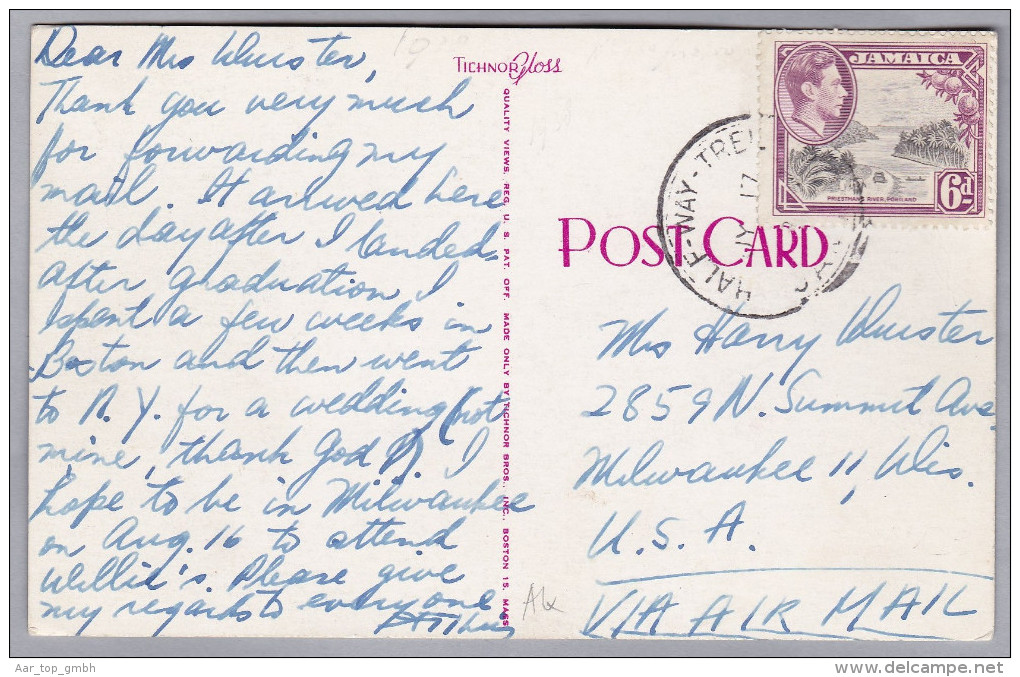 Dear Mrs Wurster,
Thank you very much
for forwarding my
mail. It arrived here
the day after I landed.
After graduation I
spent a few weeks in
Boston and then went
to N. Y. for a wedding (not
mine, thank God!). I
hope to be in Milwaukee
on Aug. 16 to attend
Willie's. Please give
my regards to everyone
TICHNOR Gloss
QUALITY VIEWS. REG. U. S. PAT. OFF. MADE ONLY BY TICHNOR BROS., INC., BOSTON 15, MASS.
POST CARD
JAMAICA
PRIESTMANS RIVER, PORTLAND
6d
HALF-WAY-TREE
17
Mrs Harry Wurster
2859 N. Summit Ave
Milwaukee 11, Wis.
U. S. A.
VIA AIR MAIL
Aar_top_gmbh
www.delcampe.net